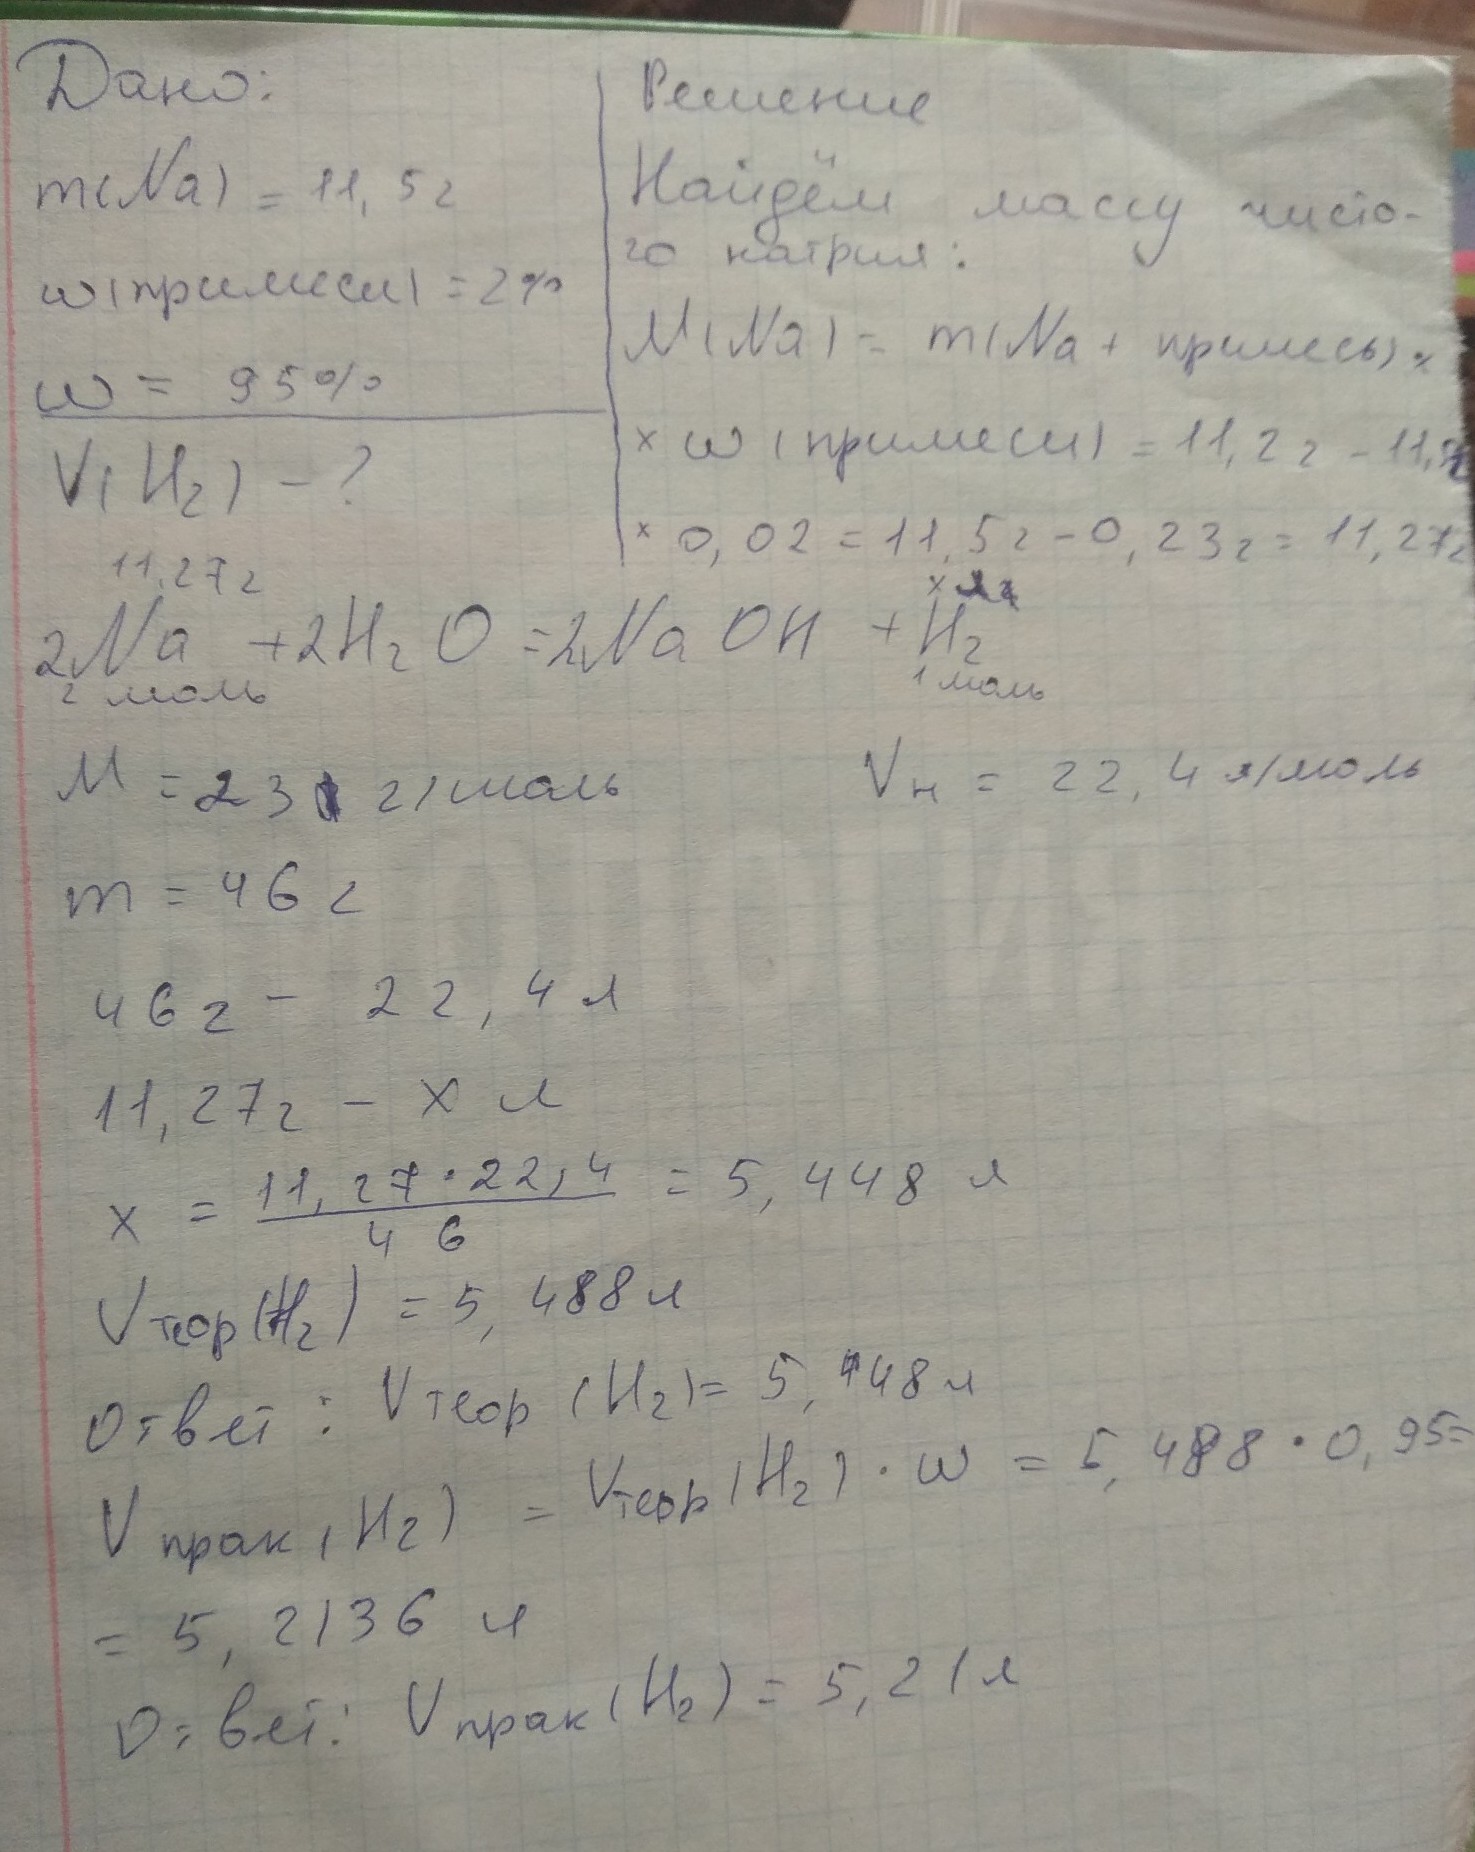 Дано:
m(Na) = 11,5г
w(примеси) = 2%
w = 95%
V(H₂) - ?
Решение
Найдём массу чисто-
го натрия:
M(Na) = m(Na + примесь) ×
× w(примеси) = 11,2г - 11,5
× 0,02 = 11,5г - 0,23г = 11,27г
11,27г х
2Na + 2H₂O = 2NaOH + H₂
2 моль 1 моль
M = 23 г/моль Vн = 22,4 л/моль
m = 46 г
46 г - 22,4 л
11,27г - х л
х = 11,27 · 22,4 / 46 = 5,448 л
Vтеор(H₂) = 5,488 л
Ответ: Vтеор (H₂) = 5,448 л
Vпрак(H₂) = Vтеор(H₂) · w = 5,488 · 0,95=
= 5,2136 л
Ответ: Vпрак(H₂) = 5,21 л
БИОЛОГИЯ